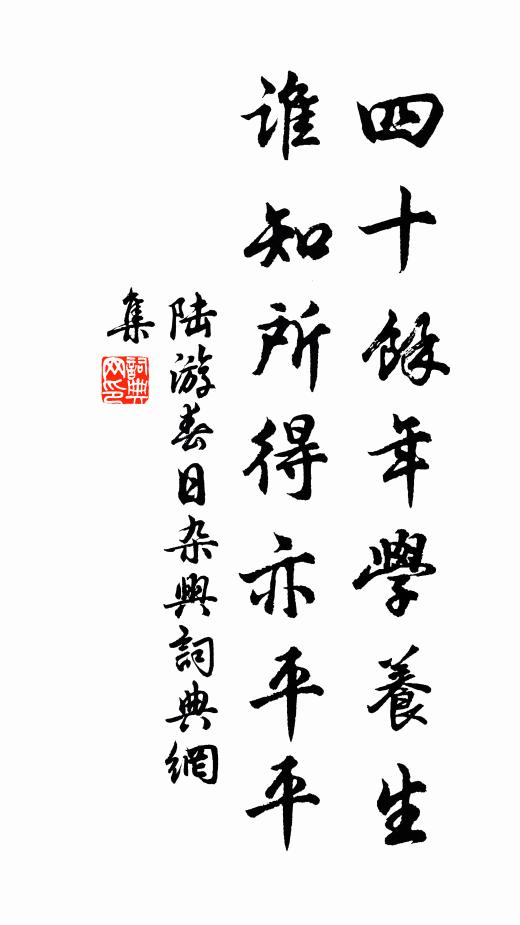 四十餘年學養生
誰知所得亦平平
陆游春日杂興詞典網
集
詞典
网印